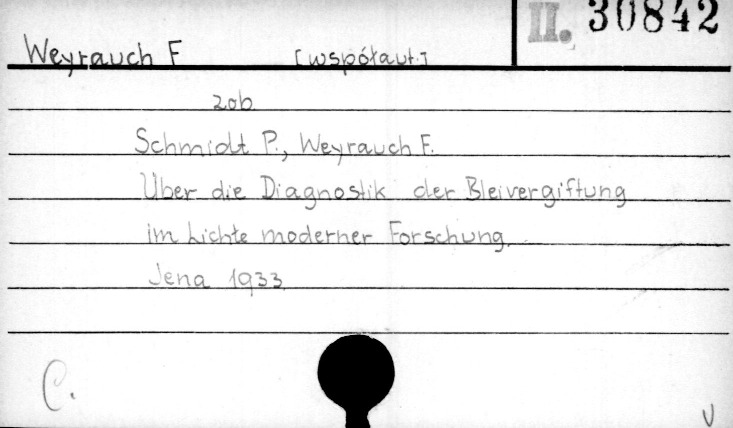 II. 30842
Weyrauch F [współaut.]
zob.
Schmidt P., Weyrauch F.
Über die Diagnostik der Bleivergiftung
im Lichte moderner Forschung.
Jena 1933.
C.
V